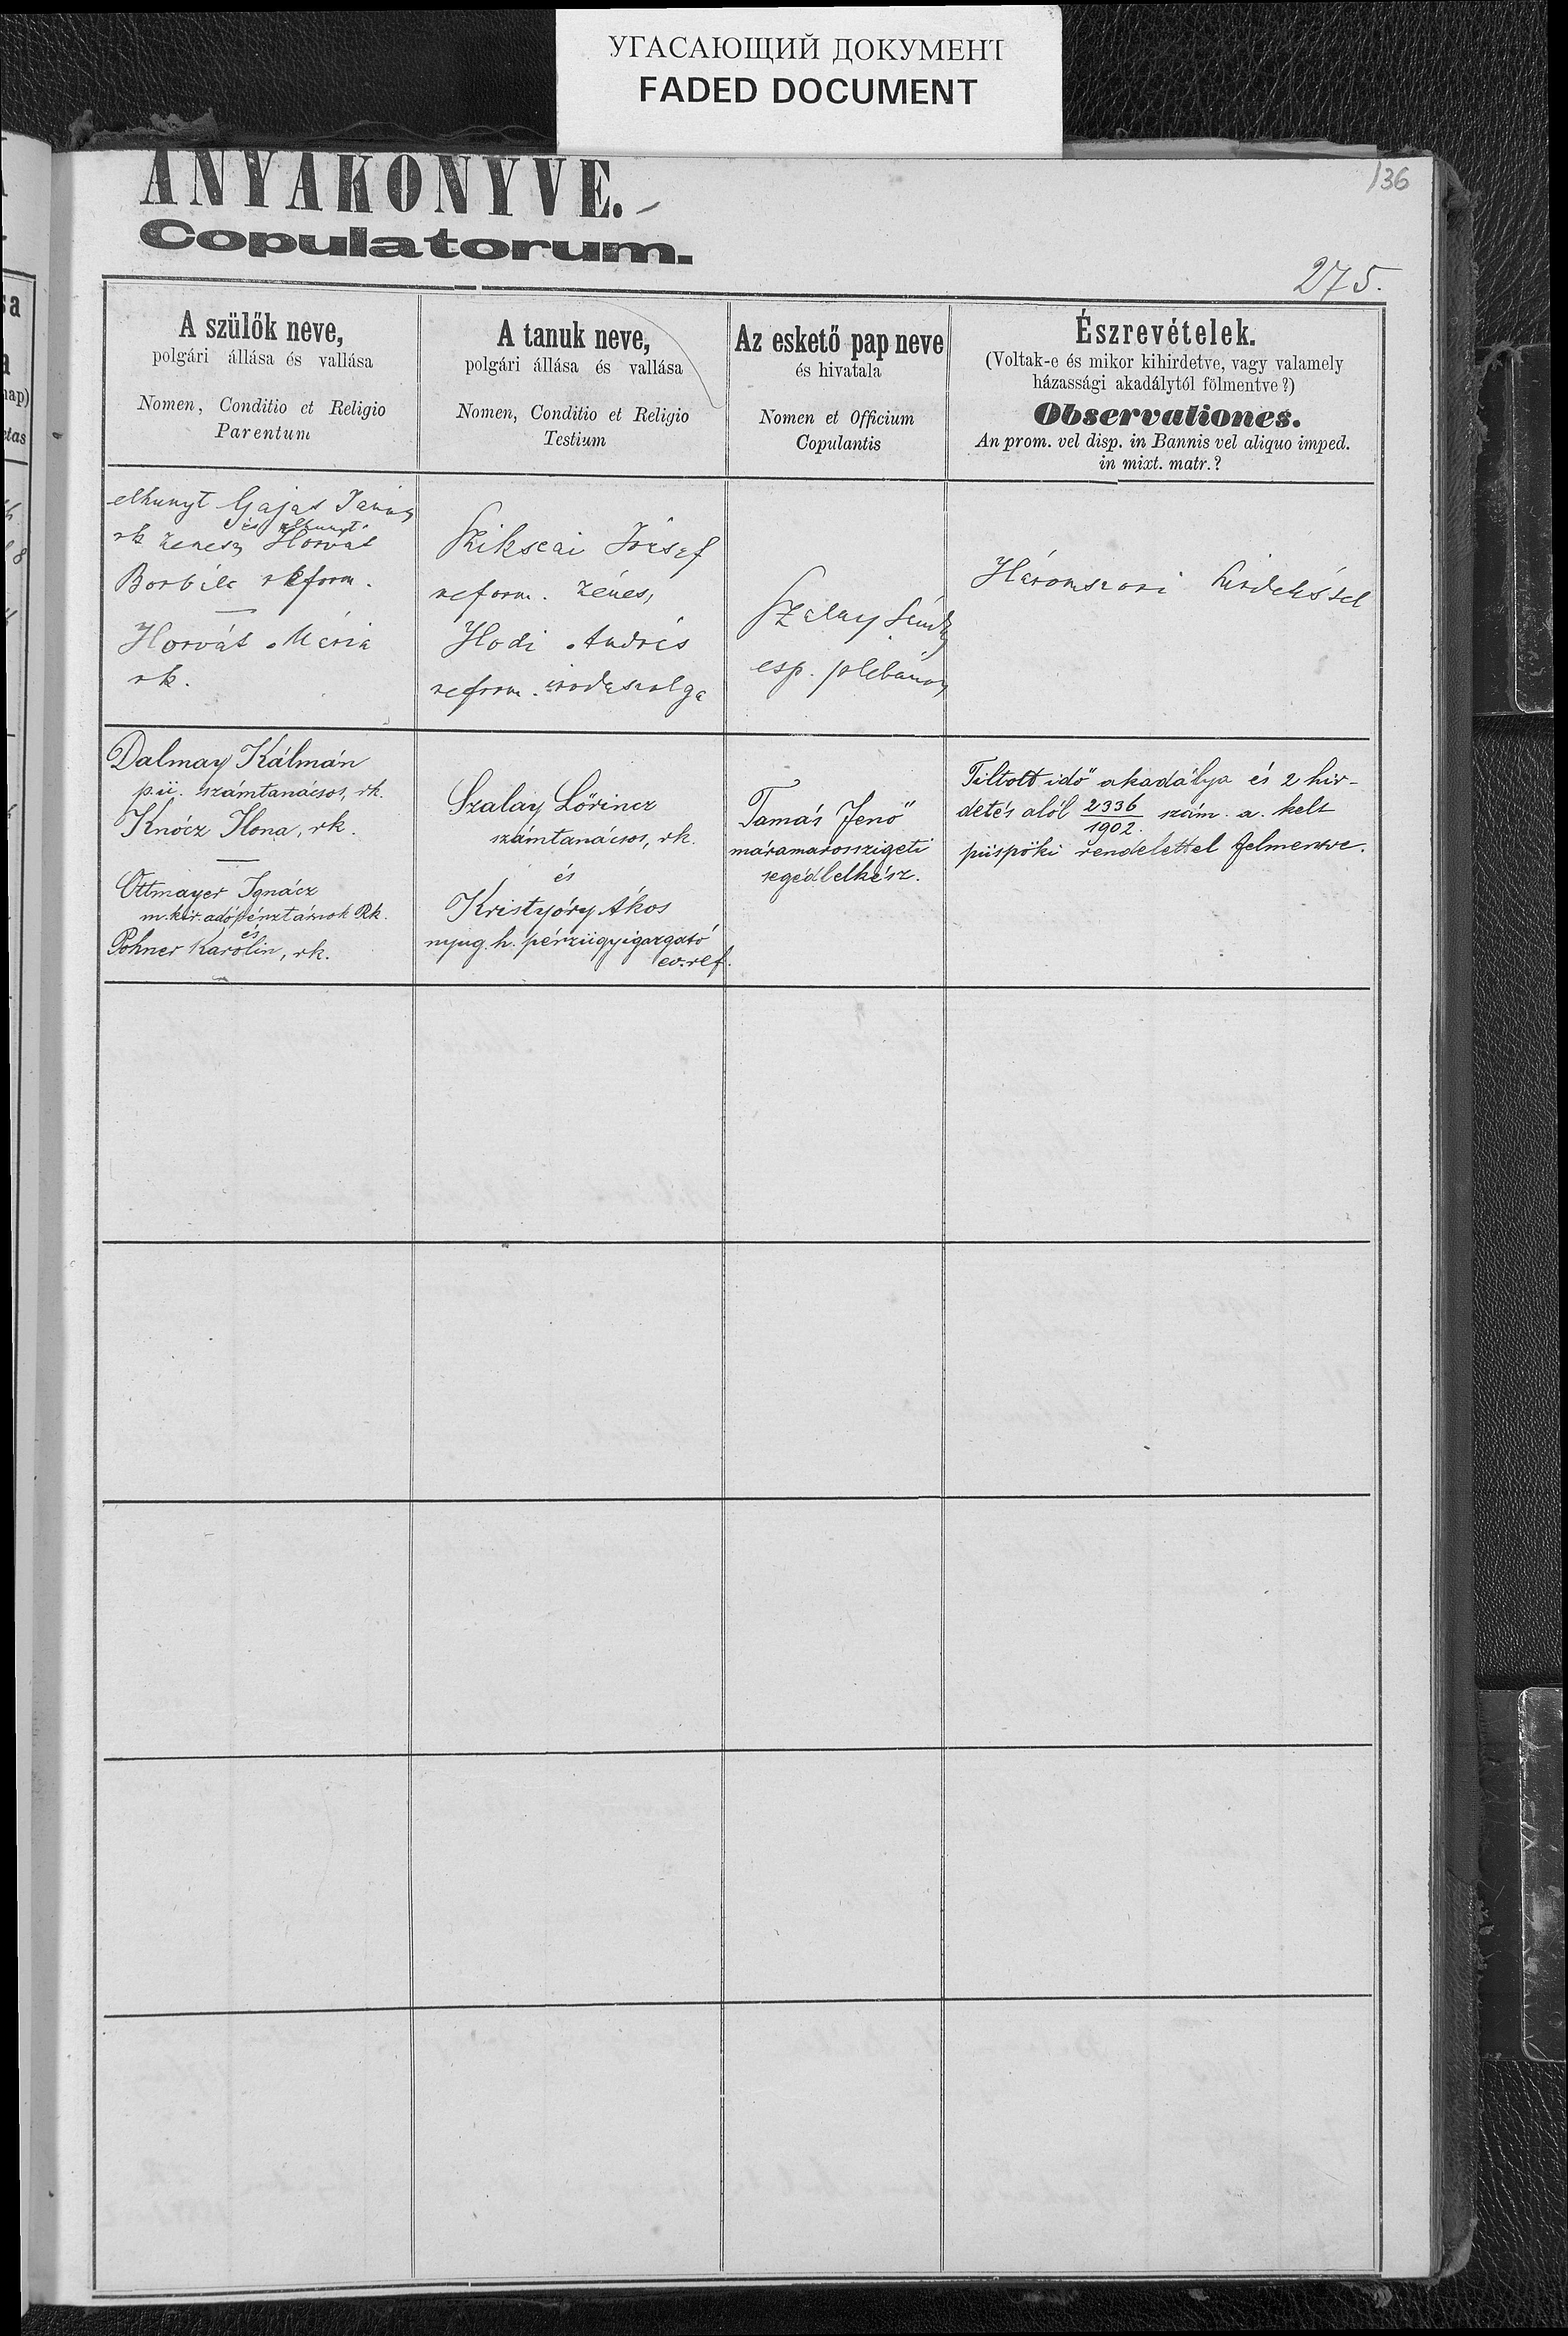 УГАСАЮЩИЙ ДОКУМЕНТ
FADED DOCUMENT
136
ANYAKÖNYVE.
Copulatorum.
275.
A szülők neve,
polgári állása és vallása
Nomen, Conditio et Religio
Parentum
A tanuk neve,
polgári állása és vallása
Nomen, Conditio et Religio
Testium
Az eskető pap neve
és hivatala
Nomen et Officium
Copulantis
Észrevételek.
(Voltak-e és mikor kihirdetve, vagy valamely
házassági akadálytól fölmentve?)
Observationes.
An prom. vel disp. in Bannis vel aliquo imped.
in mixt. matr.?
elhunyt Gajas János
és elhunyt
rk zenész Horvát
Borbála reform.
Horvát Mária
rk.
Szikszai József
reform. zenész
Hodi András
reform. irodaszolga
Szalay Sándor
esp. plébános
Háromszori hirdetéssel
Dalmay Kálmán
p.ü. számtanácsos, rk.
Knócz Ilona, rk.
Ottmayer Ignácz
m. kir. adópénztárnok Rk.
és
Pohner Karolin, rk.
Szalay Lőrincz
számtanácsos, rk.
és
Kristyóry Ákos
nyug. h. pénzügyigazgató
ev. ref.
Tamás Jenő
máramarosszigeti
segédlelkész.
Tiltott idő akadálya és 2 hir-
detés alól 2336/1902. szám. a. kelt
püspöki rendelettel felmentve.